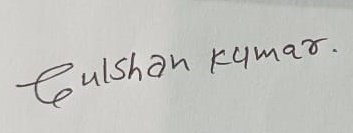 Gulshan Kumar.